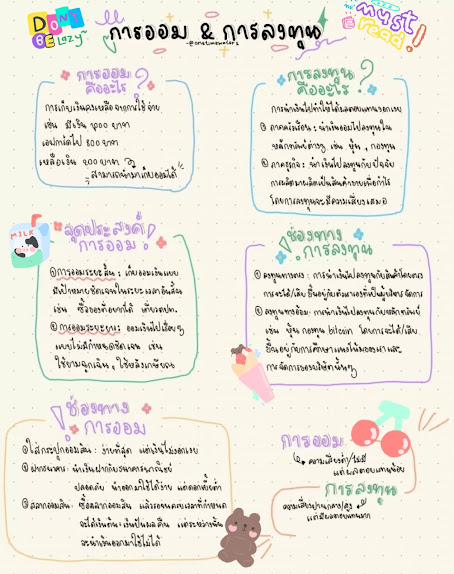 DON'T
BE Lazy~
การออม & การลงทุน
must
read!
การออม
คืออะไร?
การเก็บเงินคงเหลือจากการใช้จ่าย
เช่น มีเงิน 1,000 บาท
เหลือเงิน 200 บาท
สามารถนำมาเก็บออมได้
การลงทุน
คืออะไร?
การนำเงินไปทำให้ได้ผลตอบแทนงอกเงย
① ภาคครัวเรือน : นำเงินออมไปลงทุนใน
หลักทรัพย์ต่างๆ เช่น หุ้น, กองทุน
② ภาคธุรกิจ : นำเงินไปลงทุนกับปัจจัย
การผลิตมาผลิตเป็นสินค้าขายเพื่อกำไร
โดยการลงทุนจะมีความเสี่ยงเสมอ
MILK
จุดประสงค์
การออม!
① การออมระยะสั้น : เก็บออมเงินแบบ
มีเป้าหมายชัดเจนในระยะเวลาอันสั้น
เช่น ซื้อของที่อยากได้ เที่ยวตปท.
② การออมระยะยาว : ออมเงินไปเรื่อยๆ
แบบไม่มีกำหนดชัดเจน เช่น
ใช้ยามฉุกเฉิน, ใช้หลังเกษียณ
ช่องทาง
การลงทุน
① ลงทุนทางตรง : การนำเงินไปลงทุนกับสินค้าโดยตรง
การจะได้/เสีย ขึ้นอยู่กับตนเองที่เป็นผู้บริหารจัดการ
② ลงทุนทางอ้อม : การนำเงินไปลงทุนกับหลักทรัพย์
เช่น หุ้น กองทุน bitcoin โดยการจะได้/เสีย
ขึ้นอยู่กับการศึกษาแนวโน้มของเราและ
การจัดการของบริษัทนั้นๆ
!ช่องทาง
การออม
① ใส่กระปุกออมสิน : ง่ายที่สุด แต่เงินไม่งอกเงย
② ฝากธนาคาร : นำเงินฝากกับธนาคารพาณิชย์
ปลอดภัย นำออกมาใช้ได้ง่าย แต่ดอกเบี้ยต่ำ
③ สลากออมสิน : ซื้อสลากออมสิน แล้วรอจนครบเวลาที่กำหนด
จะได้เงินต้น + เงินปันผลคืน แต่ระหว่างนั้น
จะนำเงินออกมาใช้ไม่ได้
การออม
ความเสี่ยงต่ำ/ไม่มี
แต่ผลตอบแทนน้อย
การลงทุน
ความเสี่ยงปานกลาง/สูง
แต่มีผลตอบแทนมาก